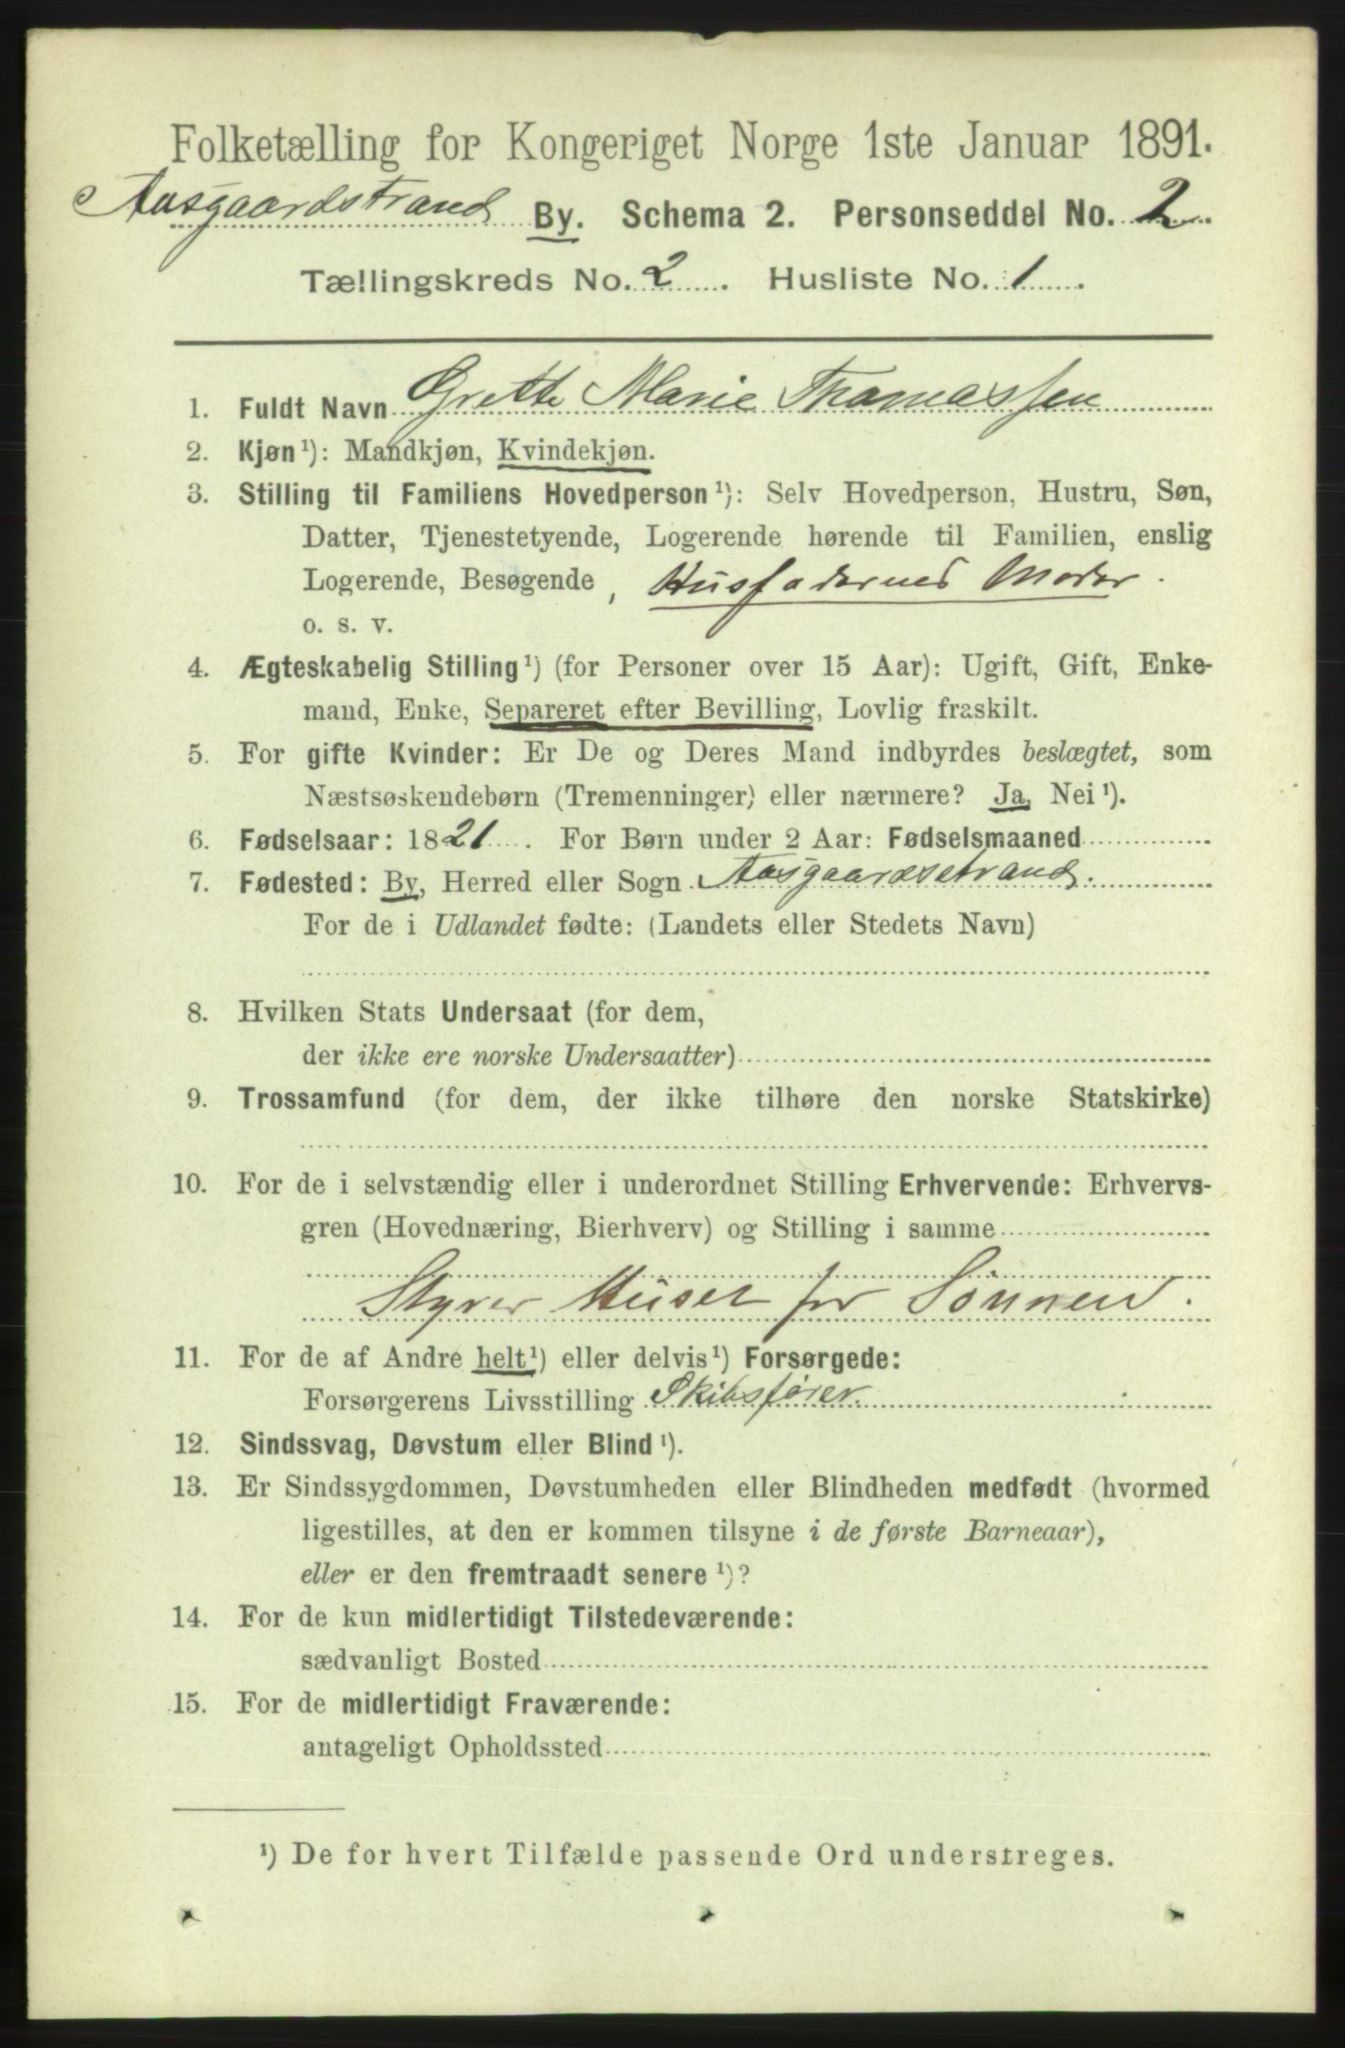 Folketælling for Kongeriget Norge 1ste Januar 1891.
Aasgaardstrand By. Schema 2. Personseddel No. 2.
Tællingskreds No. 2. Husliste No. 1.
1. Fuldt Navn Grethe Marie Thomassen
2. Kjøn¹): Mandkjøn, Kvindekjøn.
3. Stilling til Familiens Hovedperson¹): Selv Hovedperson, Hustru, Søn,
Datter, Tjenestetyende, Logerende hørende til Familien, enslig
Logerende, Besøgende, Husfaderens Moder.
o. s. v.
4. Ægteskabelig Stilling¹) (for Personer over 15 Aar): Ugift, Gift, Enke-
mand, Enke, Separeret efter Bevilling, Lovlig fraskilt.
5. For gifte Kvinder: Er De og Deres Mand indbyrdes beslægtet, som
Næstsøskendebørn (Tremenninger) eller nærmere? Ja, Nei¹).
6. Fødselsaar: 1821. For Børn under 2 Aar: Fødselsmaaned
7. Fødested: By, Herred eller Sogn Aasgaardsstrand.
For de i Udlandet fødte: (Landets eller Stedets Navn)
8. Hvilken Stats Undersaat (for dem,
der ikke ere norske Undersaatter)
9. Trossamfund (for dem, der ikke tilhøre den norske Statskirke)
10. For de i selvstændig eller i underordnet Stilling Erhvervende: Erhvervs-
gren (Hovednæring, Bierhverv) og Stilling i samme
Styrer Huset for Sønnen.
11. For de af Andre helt¹) eller delvis¹) Forsørgede:
Forsørgerens Livsstilling Skibsfører.
12. Sindssvag, Døvstum eller Blind¹).
13. Er Sindssygdommen, Døvstumheden eller Blindheden medfødt (hvormed
ligestilles, at den er kommen tilsyne i de første Barneaar),
eller er den fremtraadt senere¹)?
14. For de kun midlertidigt Tilstedeværende:
sædvanligt Bosted
15. For de midlertidigt Fraværende:
antageligt Opholdssted
¹) De for hvert Tilfælde passende Ord understreges.